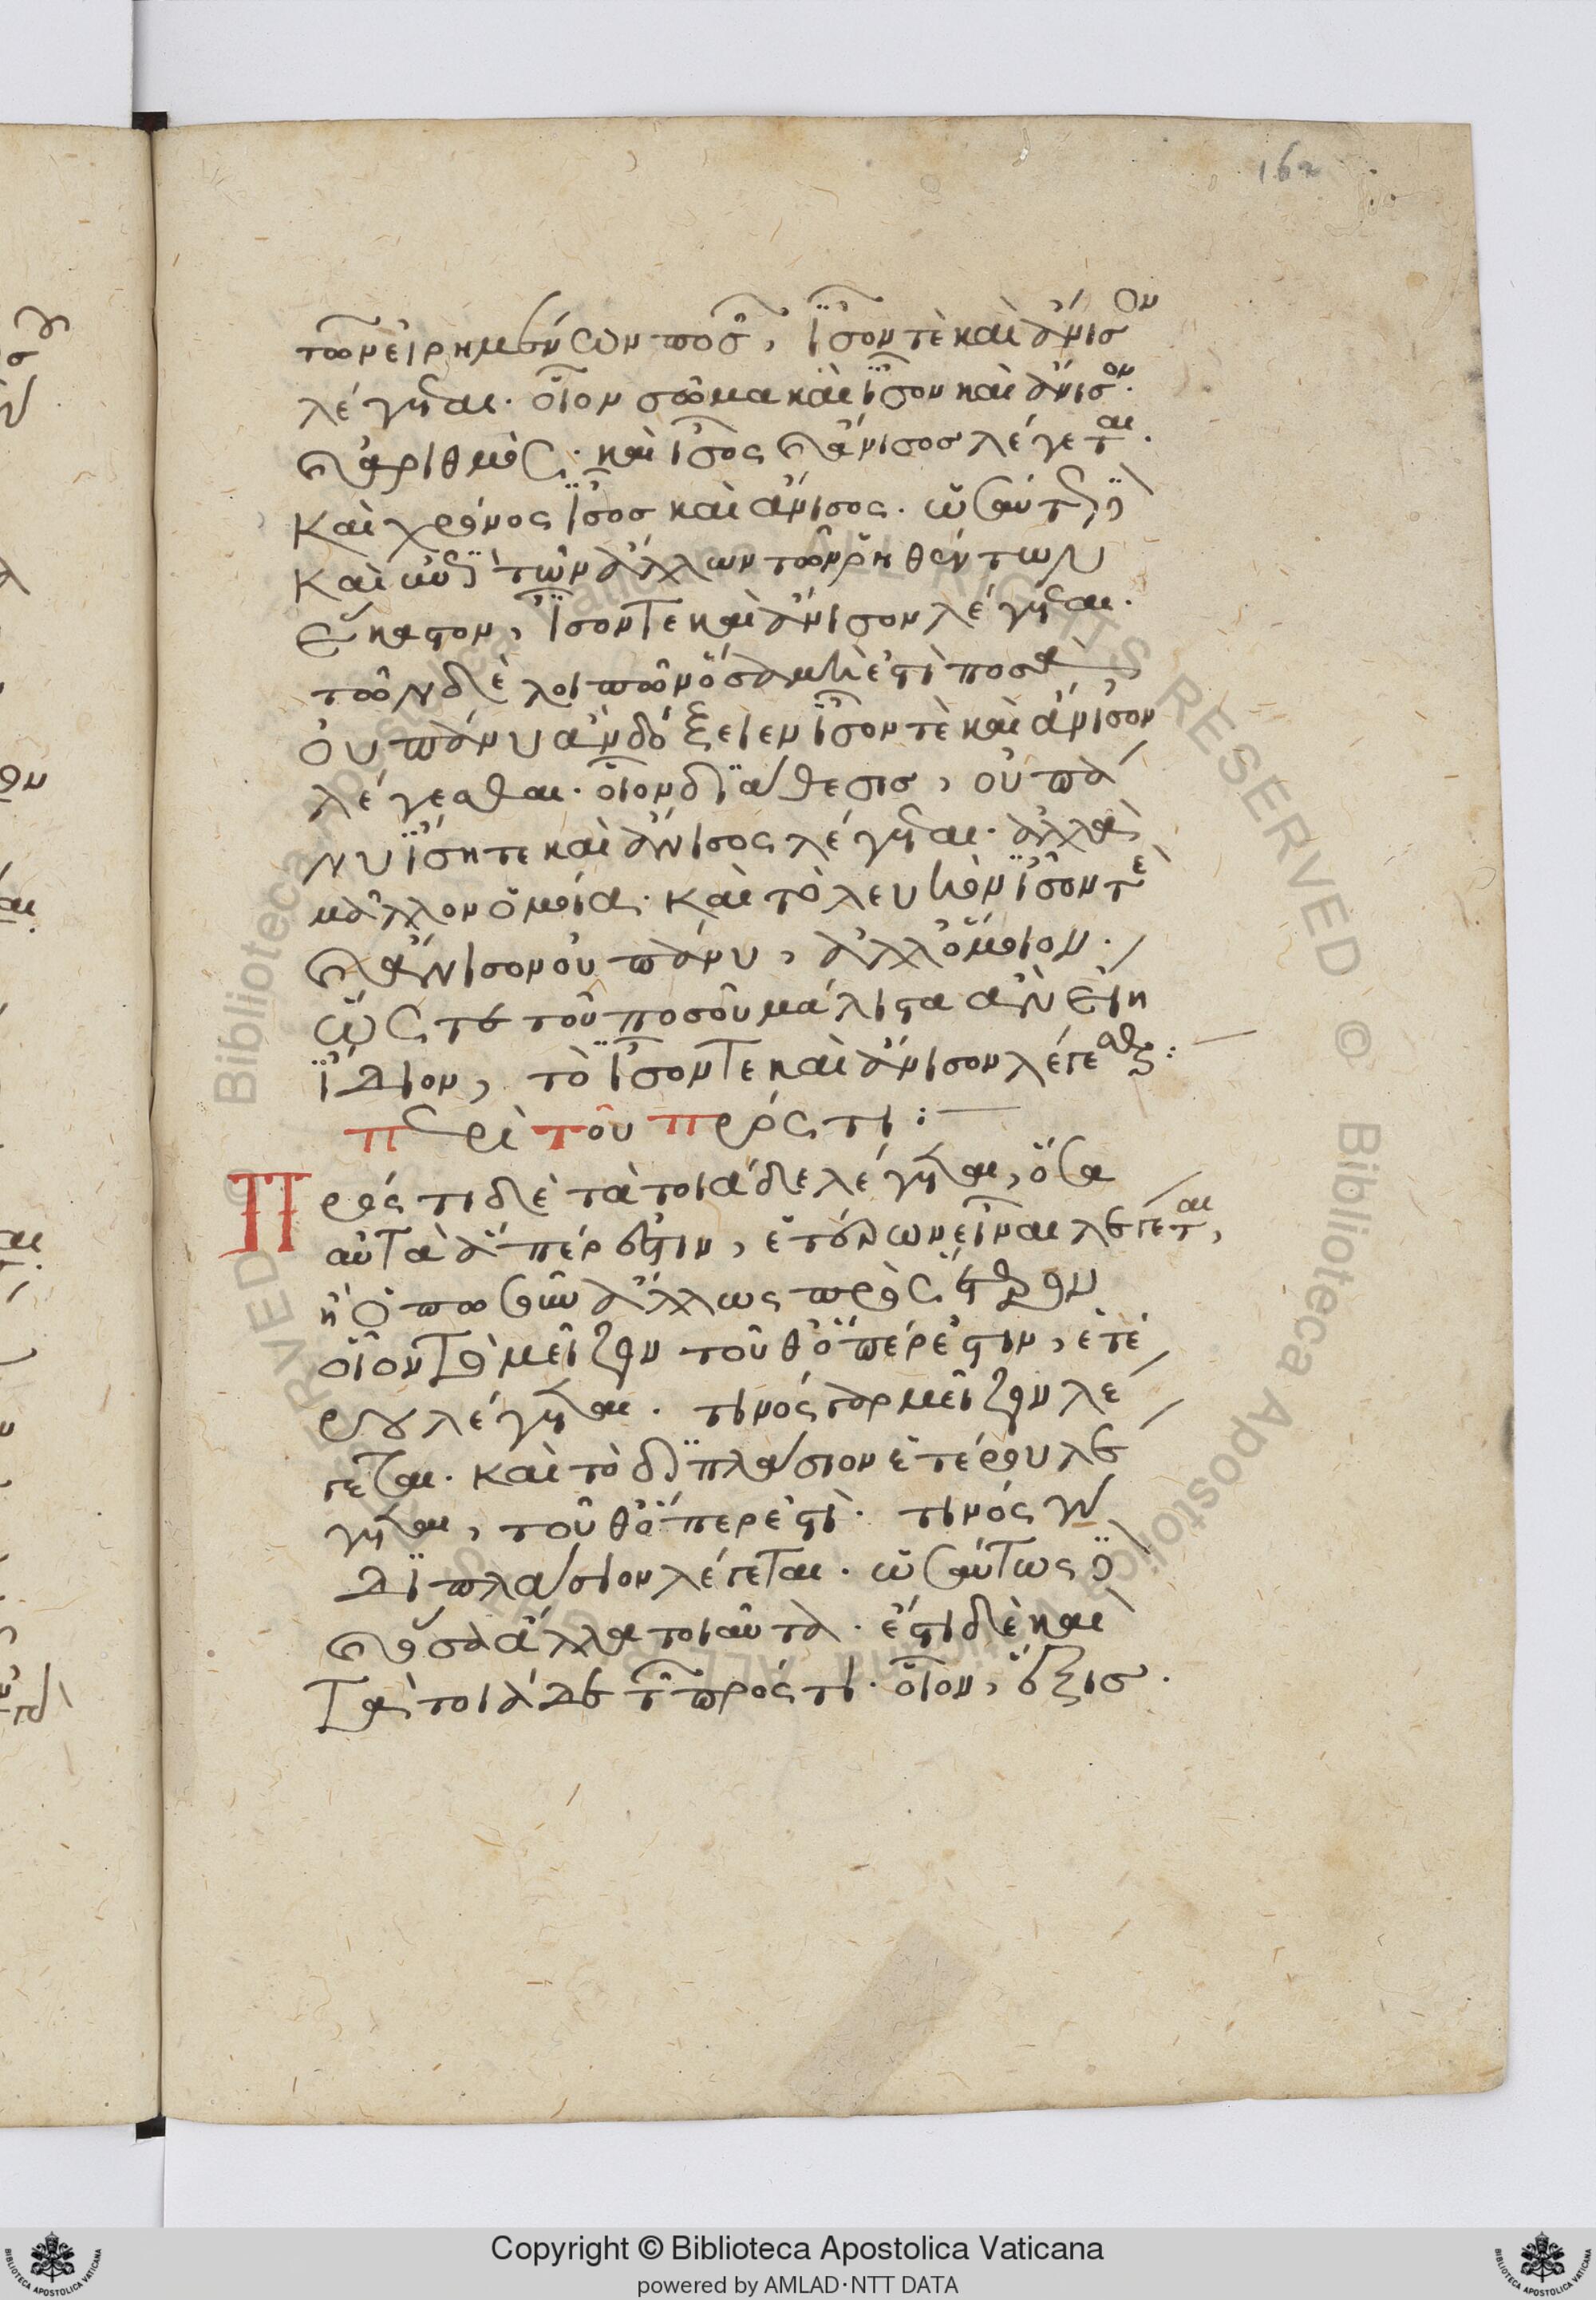 162
τῶν εἰρημένων ποσῶν, ἴσον τὲ καὶ ἄνισον
λέγεται. οἷον σῶμα καὶ ἴσον καὶ ἄνισον.
καὶ ἀριθμὸς. καὶ ἴσος καὶ ἄνισος λέγεται.
καὶ χρόνος ἴσος καὶ ἄνισος. ὡσαύτως δὲ
καὶ ἐπὶ τῶν ἄλλων τῶν ῥηθέντων
ἕκαστον, ἴσον τε καὶ ἄνισον λέγεται.
τῶν δὲ λοιπῶν ὅσα μή ἐστι ποσὰ
οὐ πάνυ ἂν δόξειεν ἴσον τὲ καὶ ἄνισον
λέγεσθαι. οἷον διάθεσις, οὐ πά
νυ ἴση τε καὶ ἄνισος λέγεται. ἀλλὰ
μᾶλλον ὁμοία. καὶ τὸ λευκὸν ἴσον τὲ
καὶ ἄνισον οὐ πάνυ, ἀλλ' ὅμοιον.
ὥστε τοῦ ποσοῦ μάλιστα ἂν εἴη
ἴδιον, τὸ ἴσον τε καὶ ἄνισον λέγεσθαι:
περὶ τοῦ πρός τι:
Πρός τι δὲ τὰ τοιάδε λέγεται, ὅσα
αὐτὰ ἅπέρ ἐστιν, ἑτέρων εἶναι λέγεται,
ἢ ὁπωσοῦν ἄλλως πρὸς ἕτερον
οἷον τὸ μεῖζον τοῦθ' ὅπέρ ἐστιν, ἑτέ
ρου λέγεται. τινός γὰρ μεῖζον λέ
γεται. καὶ τὸ διπλάσιον ἑτέρου λέ
γεται, τοῦθ' ὅπερ ἐστὶ. τινός γὰρ
διπλάσιον λέγεται. ὡσαύτως δὲ
καὶ ὅσα ἄλλα τοιαῦτα. ἔστι δὲ καὶ
τὰ τοιάδε τῶν πρός τι. οἷον, ἕξις.
Copyright © Biblioteca Apostolica Vaticana
powered by AMLAD·NTT DATA